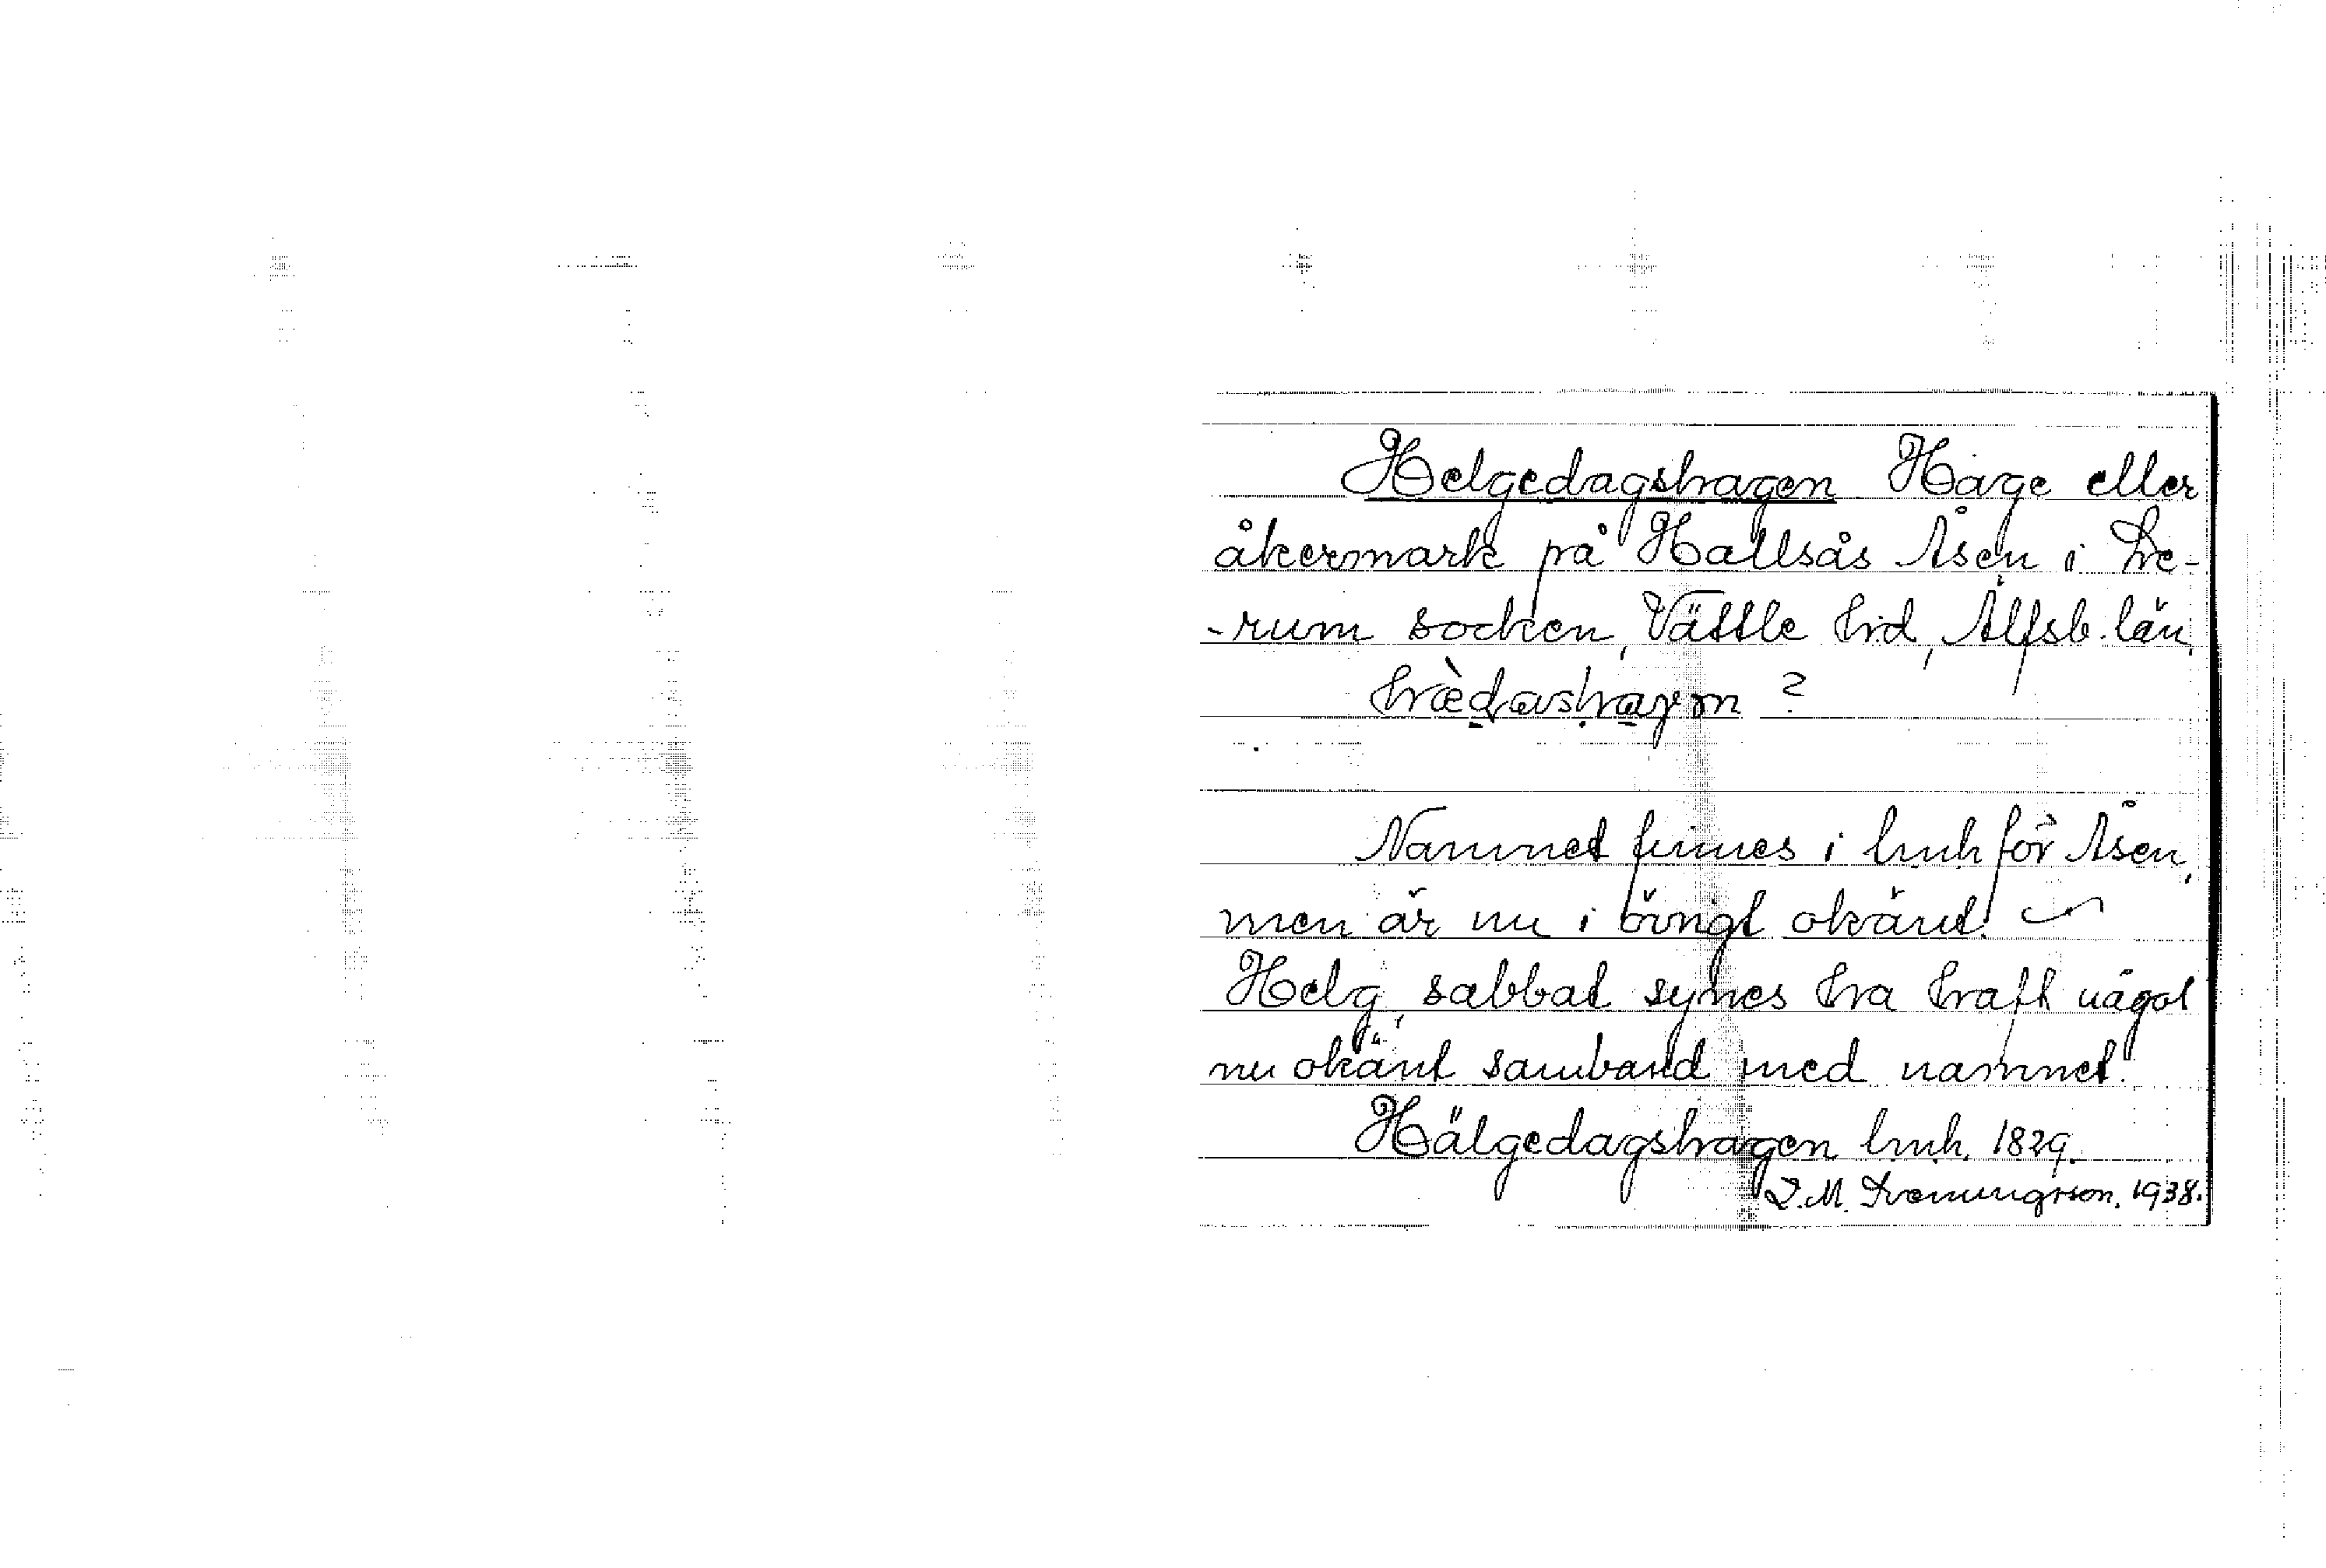 Helgedagshagen Hage eller
åkermark på Hallsås Åsen i Le-
-rum socken, Vättle hd, Älfsb. län,
hæ̀dashagen ?
Namnet finnes i lmh för Åsen,
men är nu i övrigt okänd.
Helg, sabbat synes ha haft något
nu okänt samband med namnet.
Hälgedagshagen lmh. 1829.
D.M. Svenungsson. 1938.